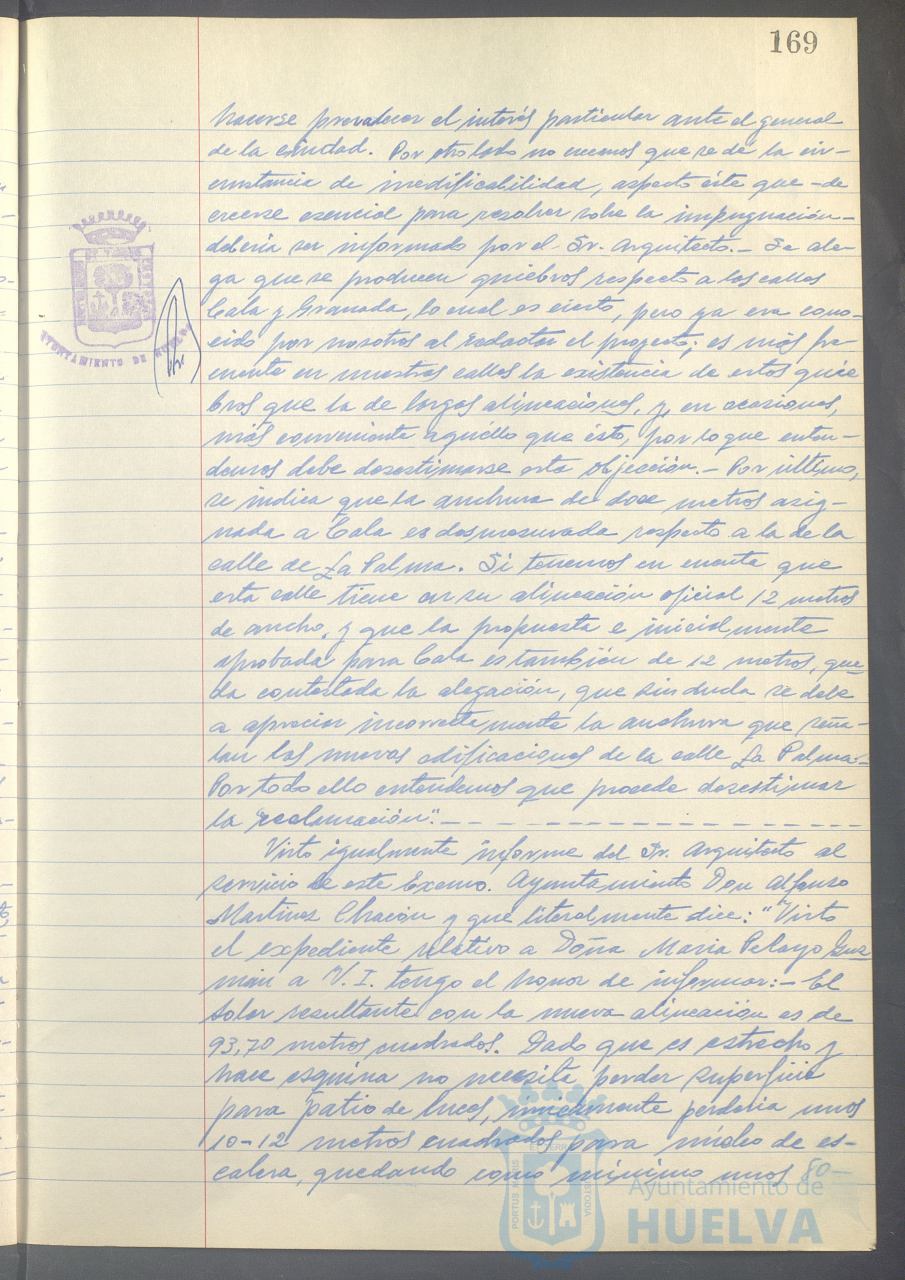 169
hacerse prevalecer el interés particular ante el general
de la ciudad. Por otro lado no creemos que se dé la cir-
cunstancia de inedificabilidad, aspecto éste que -de
creerse esencial para resolver sobre la impugnación-
debería ser informado por el Sr. Arquitecto.- Se ale-
ga que se producen quiebros respecto a las calles
Cala y Granada, lo cual es cierto, pero ya era cono-
cido por nosotros al redactar el proyecto; es más fre-
cuente en nuestras calles la existencia de estos quie
bros que la de largas alineaciones, y, en ocasiones,
más conveniente aquéllo que ésto, por lo que enten-
demos debe desestimarse esta objección.- Por último,
se indica que la anchura de doce metros asig-
nada a Cala es desmesurada respecto a la de la
calle de La Palma. Si tenemos en cuenta que
esta calle tiene en su alineación oficial 12 metros
de ancho, y que la propuesta e inicialmente
aprobada para Cala es también de 12 metros, que-
da contestada la alegación, que sin duda se debe
a apreciar incorrectamente la anchura que seña-
lan las nuevas edificaciones de la calle La Palma.-
Por todo ello entendemos que procede desestimar
la reclamación".- - - - - - - - - - - - - - - -
Visto igualmente informe del Sr. Arquitecto al
servicio de este Excmo. Ayuntamiento Don Alfonso
Martinez Chacón y que literalmente dice: "Visto
el expediente relativo a Doña María Pelayo Guz
mán a V. I. tengo el honor de informar:- El
solar resultante con la nueva alineación es de
93,70 metros cuadrados. Dado que es estrecho y
hace esquina no necesita perder superficie
para patio de luces, únicamente perdería unos
10-12 metros cuadrados para núcleo de es-
calera, quedando como mínimo unos 80-
AYUNTAMIENTO DE HUELVA
PORTUS MARIS
ET TERRAE CUSTODIA
Ayuntamiento de
HUELVA